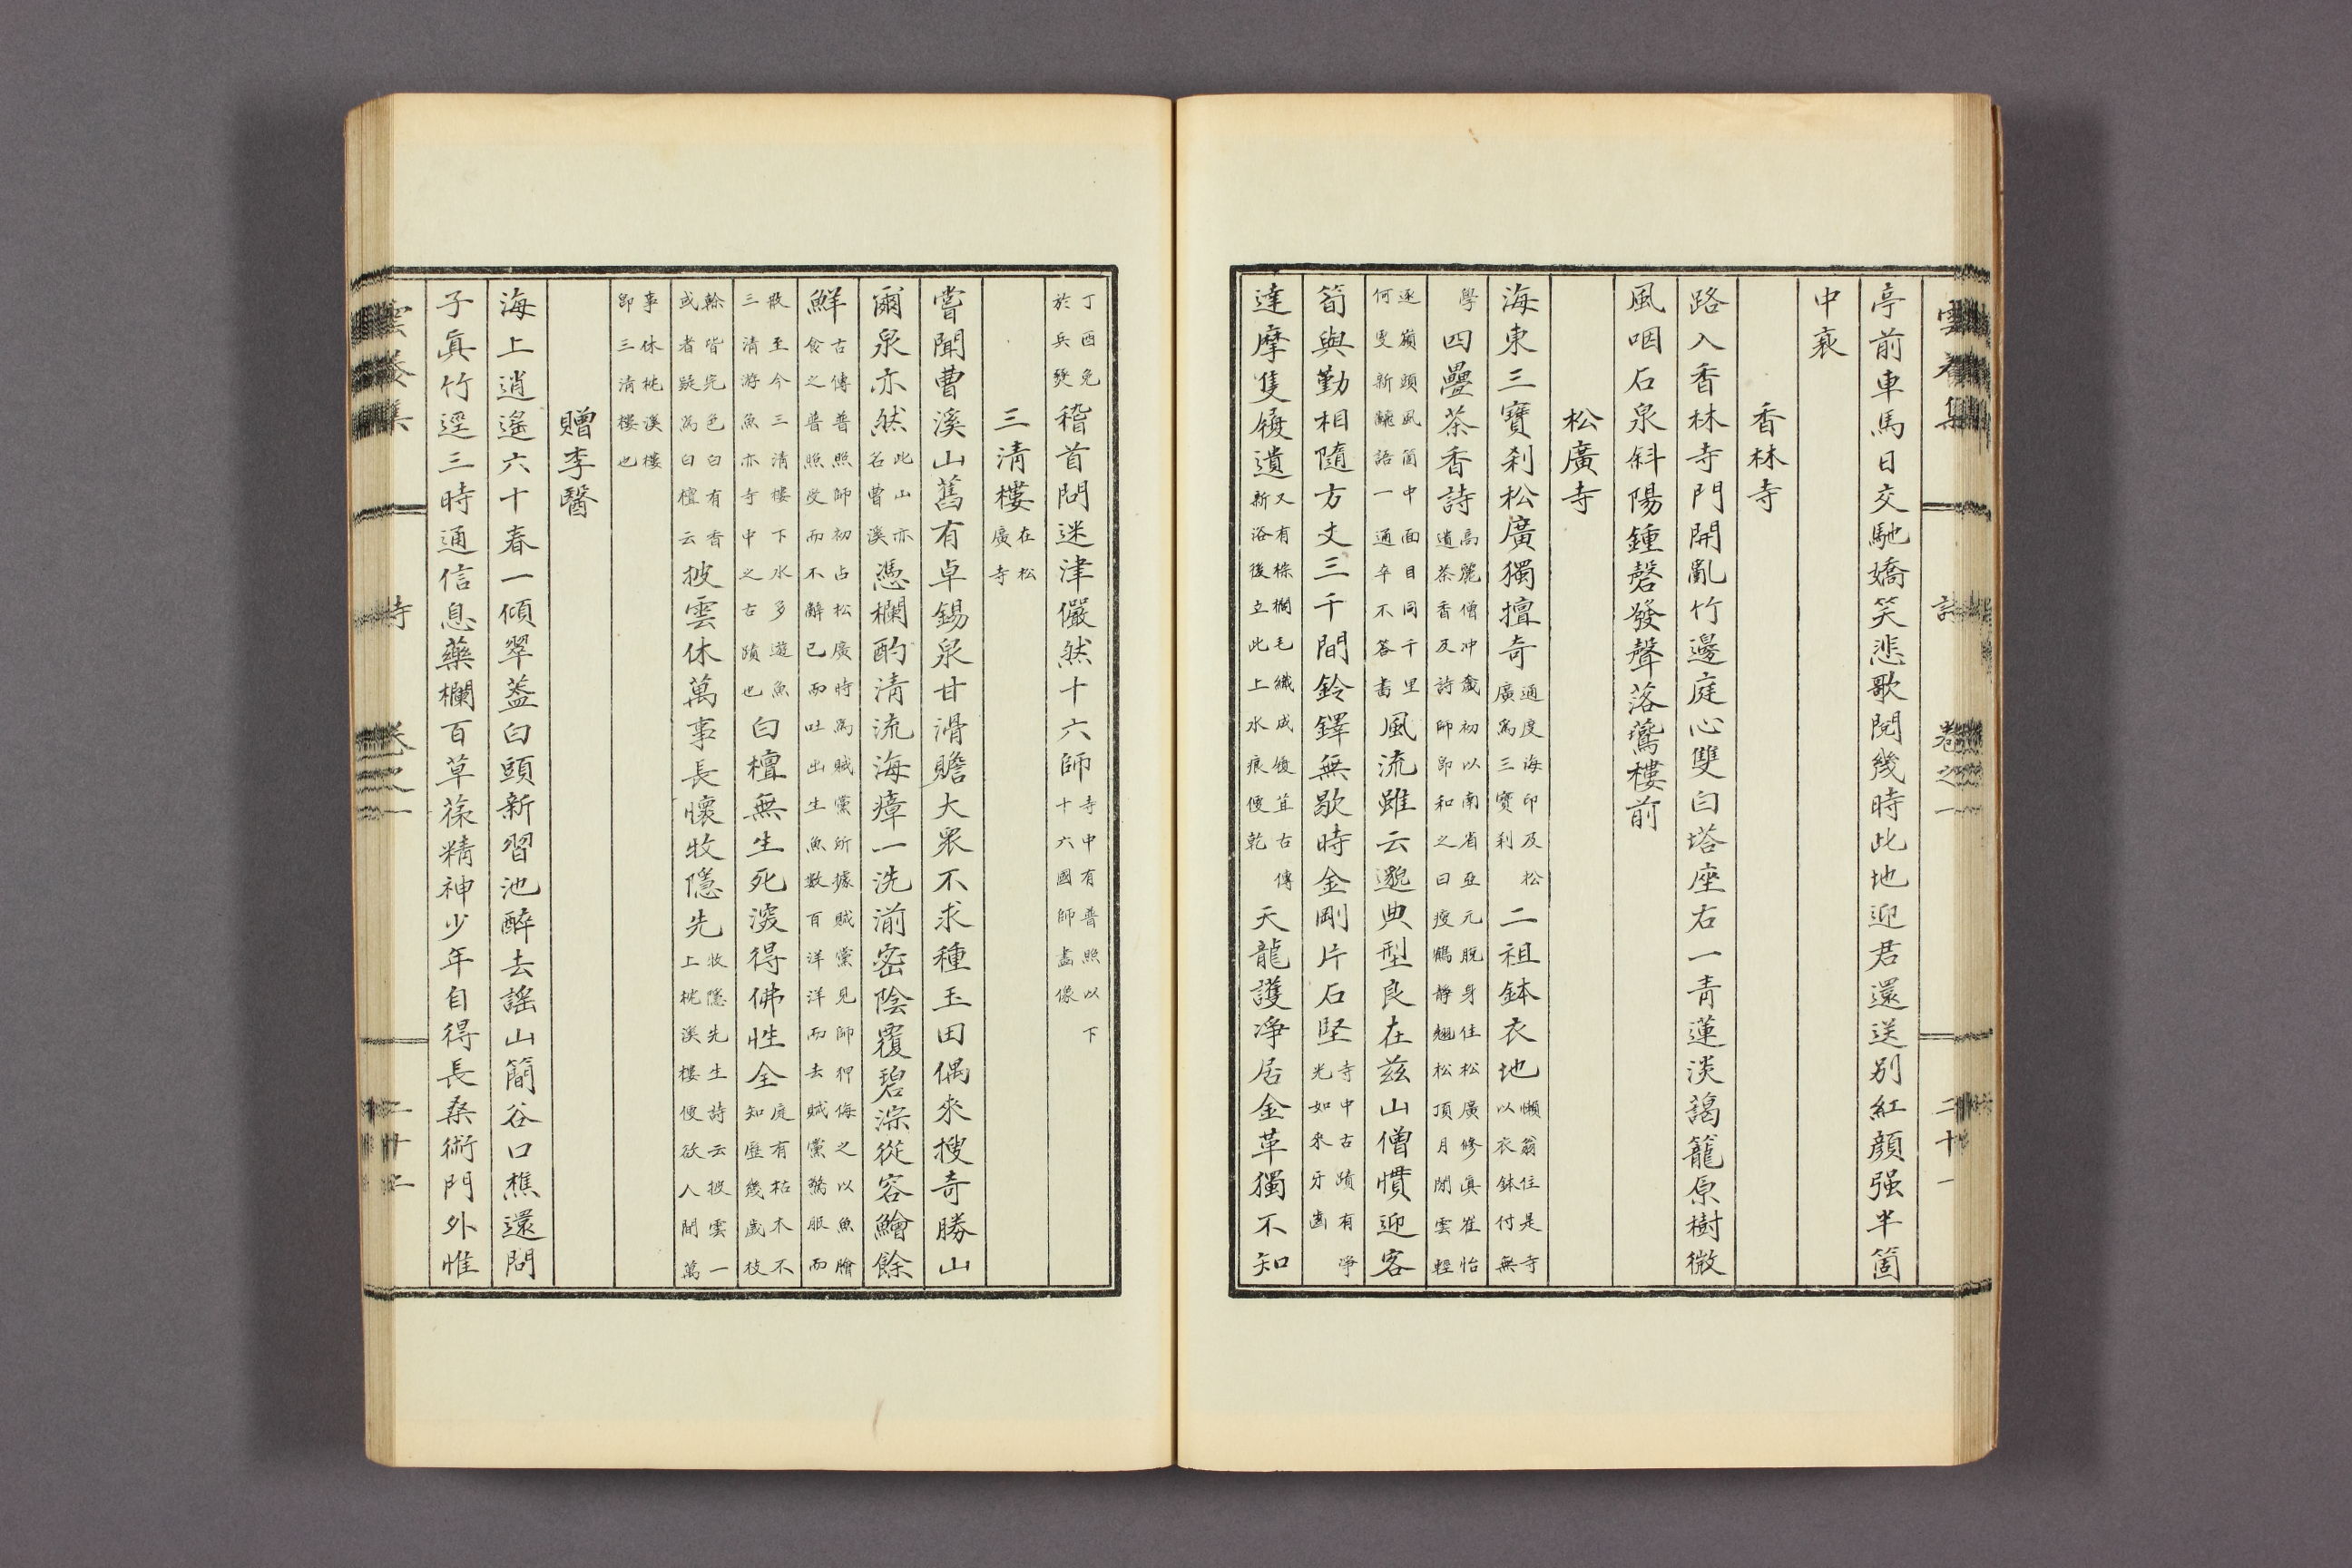 亭前車馬日交馳嬌笑悲歌閱幾時此地迎君還送别紅顔强半箇
中衰
香林寺
路入香林寺門開亂竹邊庭心雙白塔座右一青蓮淡靄籠原樹微
風咽石泉斜陽鍾磬發聲落鷲樓前
松廣寺
海東三寶刹松廣獨擅奇
通度海印及松
廣爲三寶刹
二祖鉢衣地
懶翁住是寺
以衣鉢付無
學
四疊茶香詩
高麗僧冲戱初以南省亞元脫身住松廣修眞崔怡
遺茶香及詩師即和之曰瘦鶴静翹松頂月閒雲輕
逐嶺頭風箇中面目同千里
何更新飜語一通卒不答書
風流雖云邈典型良在兹山僧慣迎客
筍與勤相隨方丈三千間鈴鐸無歇時金剛片石堅
寺中古蹟有淨
光如來牙齒
達摩隻履遺
又有椶櫚毛織成履苴古傳
新浴後立此上水痕便乾
天龍護淨居金革獨不知
丁酉免
於兵燹
稽首問迷津儼然十六師
寺中有普照以下
十六國師畵像
三清樓
在松
廣寺
嘗聞曹溪山舊有卓錫泉甘滑贍大衆不求種玉田偶來搜奇勝山
爾泉亦然
此山亦
名曹溪
憑欄酌清流海瘴一洗湔密陰覆碧淙從容鱠餘
鮮
古傳普照師初占松廣時爲賊黨所據賊黨見師狎侮之以魚膾
食之普照受而不辭已而吐出生魚數百洋洋而去賊黨驚服而
散至今三清樓下水多遊魚
三清游魚亦寺中之古蹟也
白檀無生死浚得佛性全
庭有枯木不
知歷幾歲枝
榦皆完色白有香
或者疑爲白檀云
披雲休萬事長懷牧隱先
牧隱先生詩云披雲一
上枕溪樓便欲人間萬
事休枕溪樓
即三清樓也
贈李醫
海上逍遙六十春一傾翠蓋白頭新習池醉去謠山簡谷口樵還問
子眞竹逕三時通信息藥欄百草葆精神少年自得長桑術門外惟